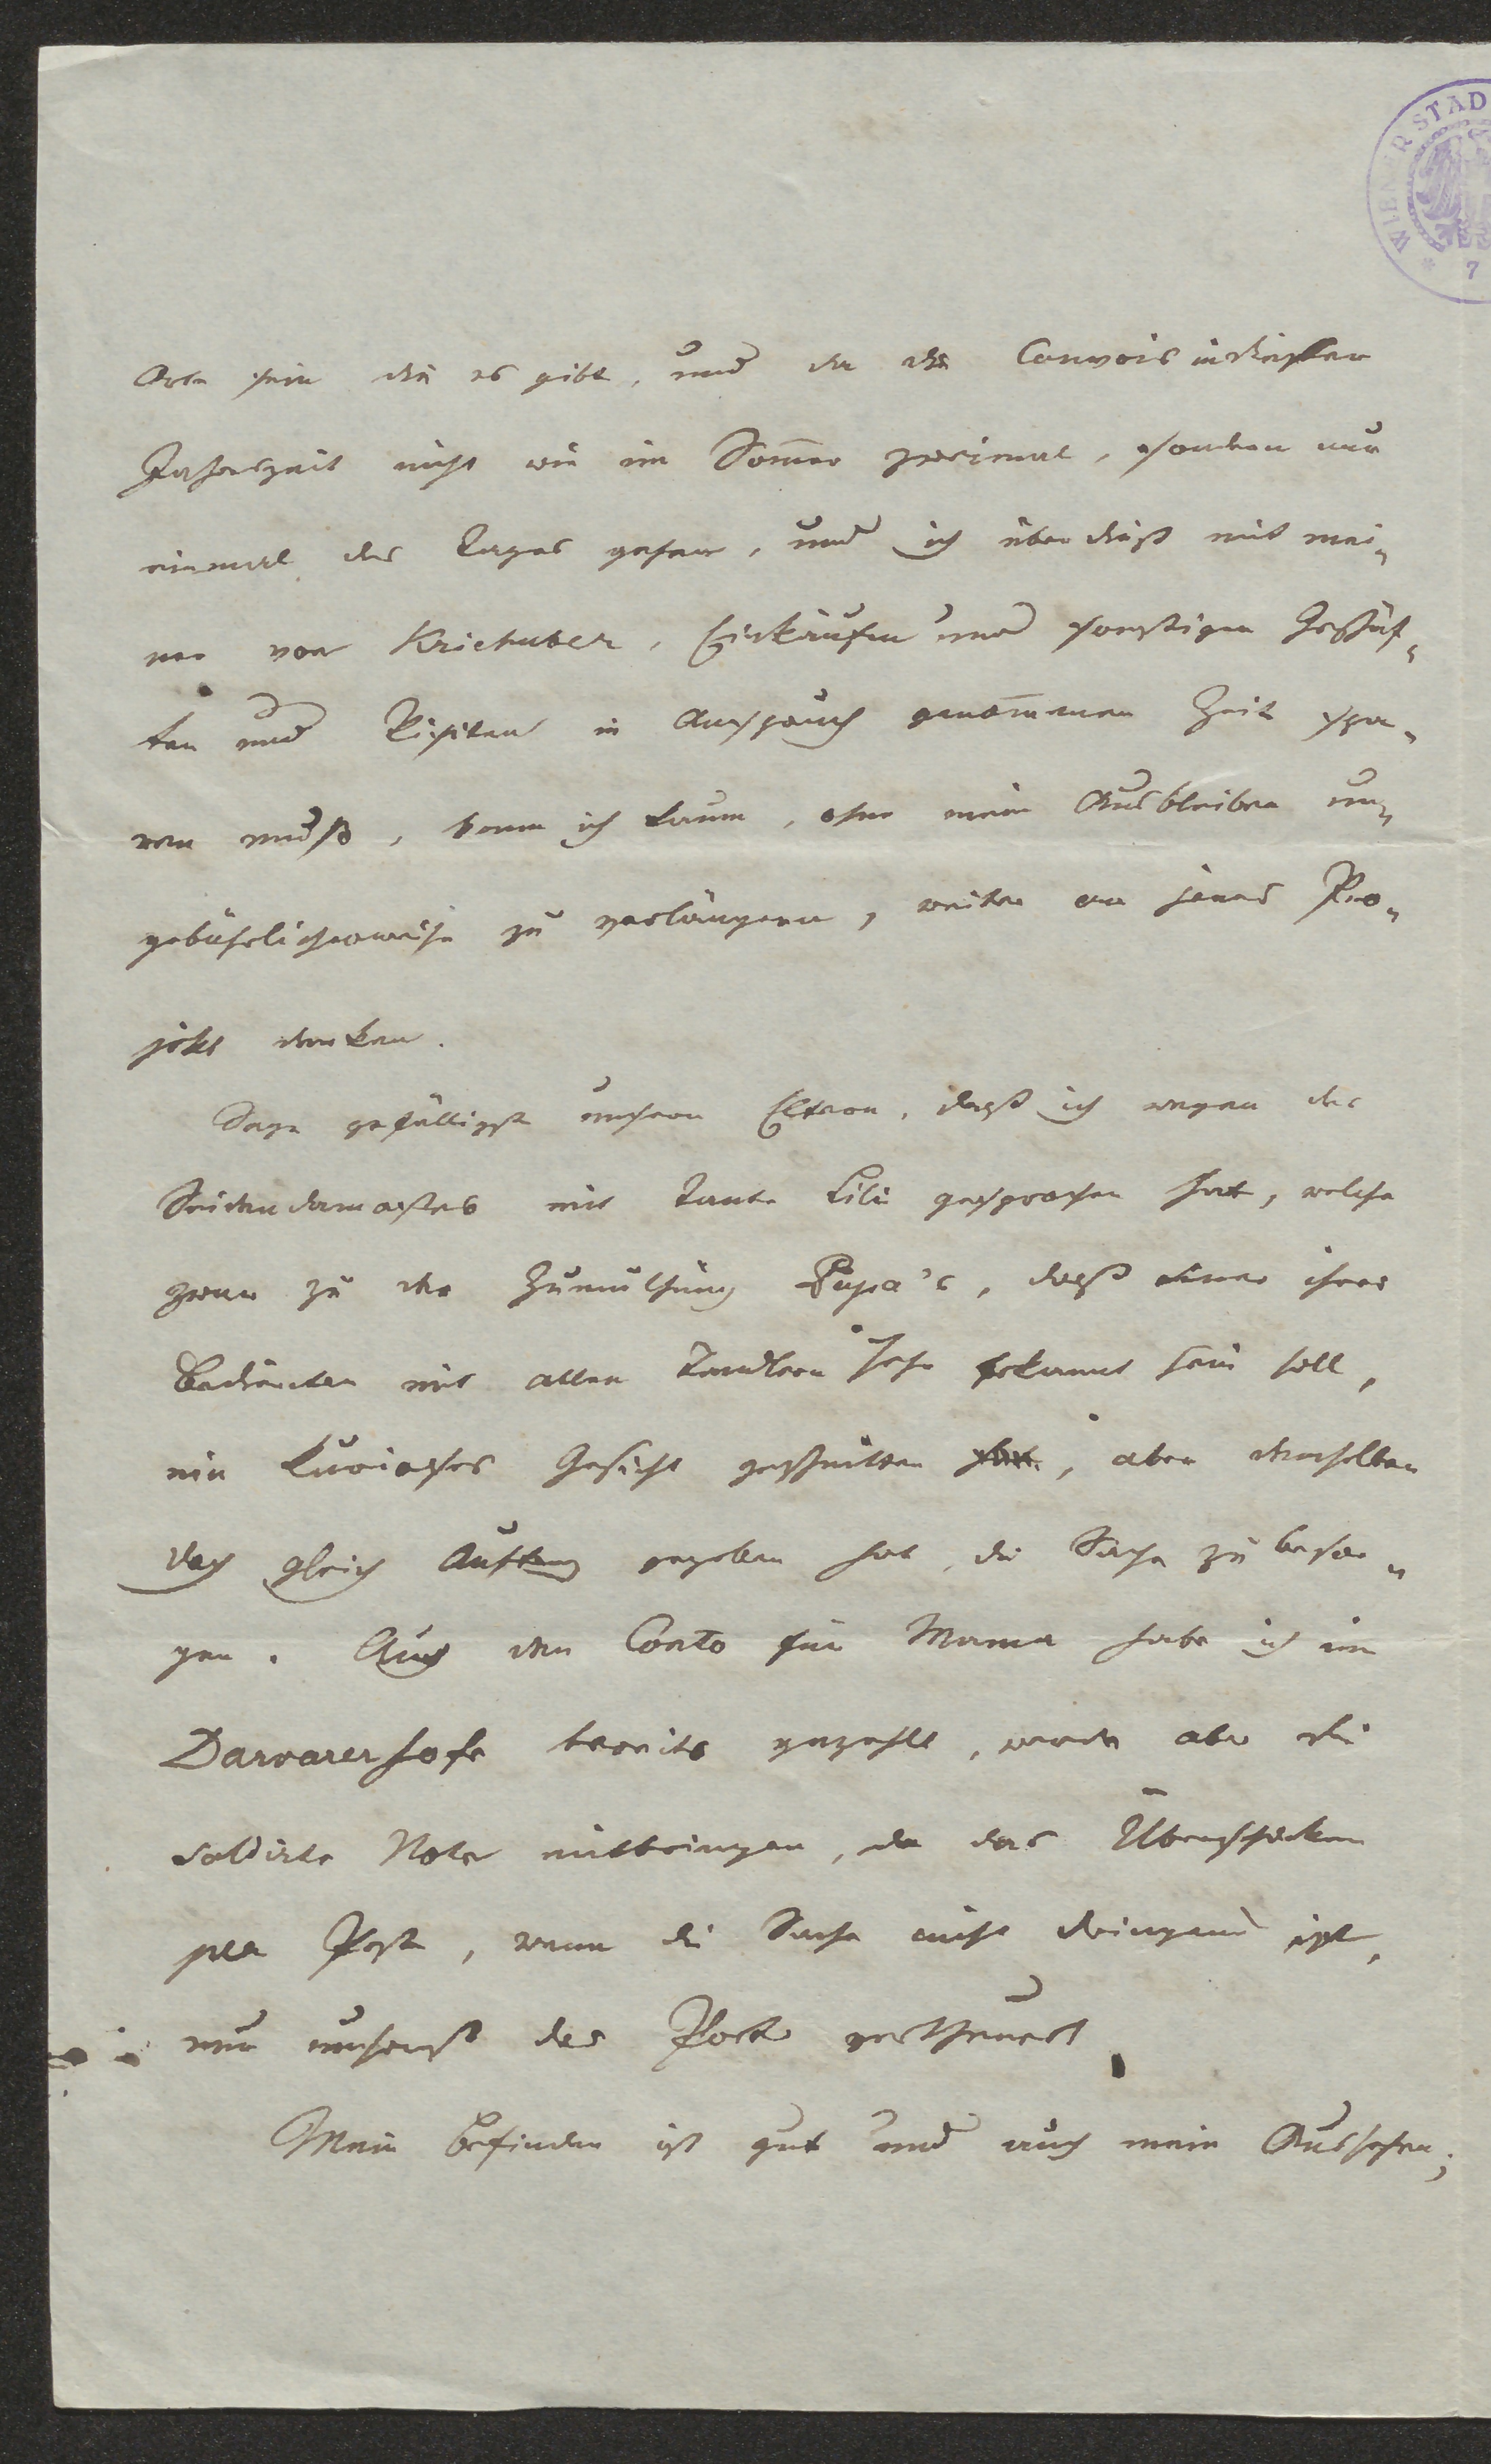 WIENER STAD
7
Orte sein die es gibt, und da die Convois in dieser
Jahreszeit nicht wie im Som̅er zweimal, sondern nur
einmal des Tages gehen, und ich überdieß mit mei-
ner von Kriehuber, Einkäufen und sonstigen Geschäf-
ten und Visiten in Anspruch genom̅enen Zeit spa-
ren muß, kann ich kaum, ohne mein Ausbleiben un-
gebührlicherweise zu verlängern, weiter an jenes Pro-
jekt denken.
Sage gefälligst unsern Eltern, daß ich wegen des
Seidendamastes mit Tante Lili gesprochen hat, welche
zwar zu der Zumuthung Papa's, daß einer ihrer
Bedienten mit allen Tandlern sehr bekannt sein soll,
ein kurioses Gesicht geschnitten, aber demselben
doch gleich Auftrag gegeben hat, die Sache zu besor-
gen. Aus den Conto für Mama habe ich im
Darvarerhofe bereits gezahlt, werde aber die
saldirte Note mitbringen, da das Überschicken
per Post, wenn die Sache nicht dringend ist,
nur umsonst das Porto vertheuert.
Mein Befinden ist gut und auch mein Aussehen;